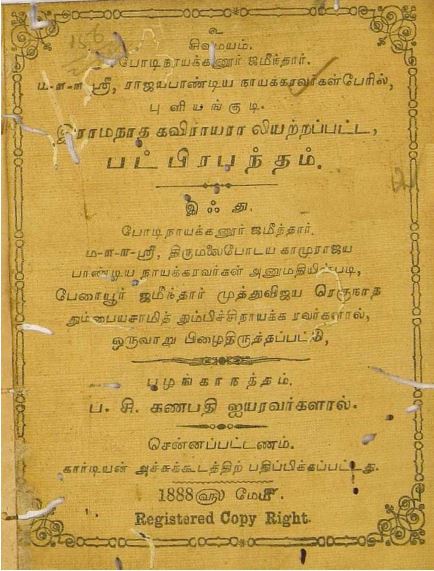 உ
சிவமயம்.
போடிநாயக்கனூர் ஜமீந்தார்.
ம-ள-ள ஸ்ரீ, ராஜயபாண்டிய நாயக்கரவர்கள்பேரில்,
புளியங்குடி.
இராமநாத கவிராயரா லியற்றப்பட்ட,
பட்பிரபந்தம்.
இஃது.
போடிநாயக்கனூர் ஜமீந்தார்.
ம-ள-ள-ஸ்ரீ, திருமலைபோடய காமுராஜய
பாண்டிய நாயக்கரவர்கள் அனுமதியின்படி,
பேரையூர் ஜமீந்தார் முத்துவிஜய ரெகுநாத
தும்பையசாமித் தும்பிச்சிநாயக்க ரவர்களால்,
ஒருவாறு பிழைதிருத்தப்பட்டு,
புழங்காநத்தம்.
ப. சி. கணபதி ஐயரவர்களால்.
சென்னப்பட்டணம்.
கார்டியன் அச்சுக்கூடத்திற் பதிப்பிக்கப்பட்டது.
1888௵ மே௴.
Registered Copy Right.